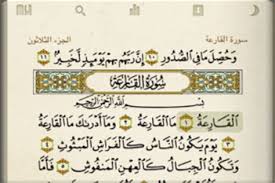 سورة القارعة الجزء الثلاثون
وَحُصِّلَ مَا فِي ٱلصُّدُورِ ١٠ إِنَّ رَبَّهُم بِهِمْ يَوْمَئِذٍ لَّخَبِيرٌ ١١
سُورَةُ القَارِعَةِ
بِسْمِ ٱللَّهِ ٱلرَّحْمَٰنِ ٱلرَّحِيمِ
ٱلْقَارِعَةُ ١ مَا ٱلْقَارِعَةُ ٢ وَمَآ أَدْرَىٰكَ مَا ٱلْقَارِعَةُ
٣ يَوْمَ يَكُونُ ٱلنَّاسُ كَٱلْفَرَاشِ ٱلْمَبْثُوثِ ٤
وَتَكُونُ ٱلْجِبَالُ كَٱلْعِهْنِ ٱلْمَنفُوشِ ٥ فَأَمَّا